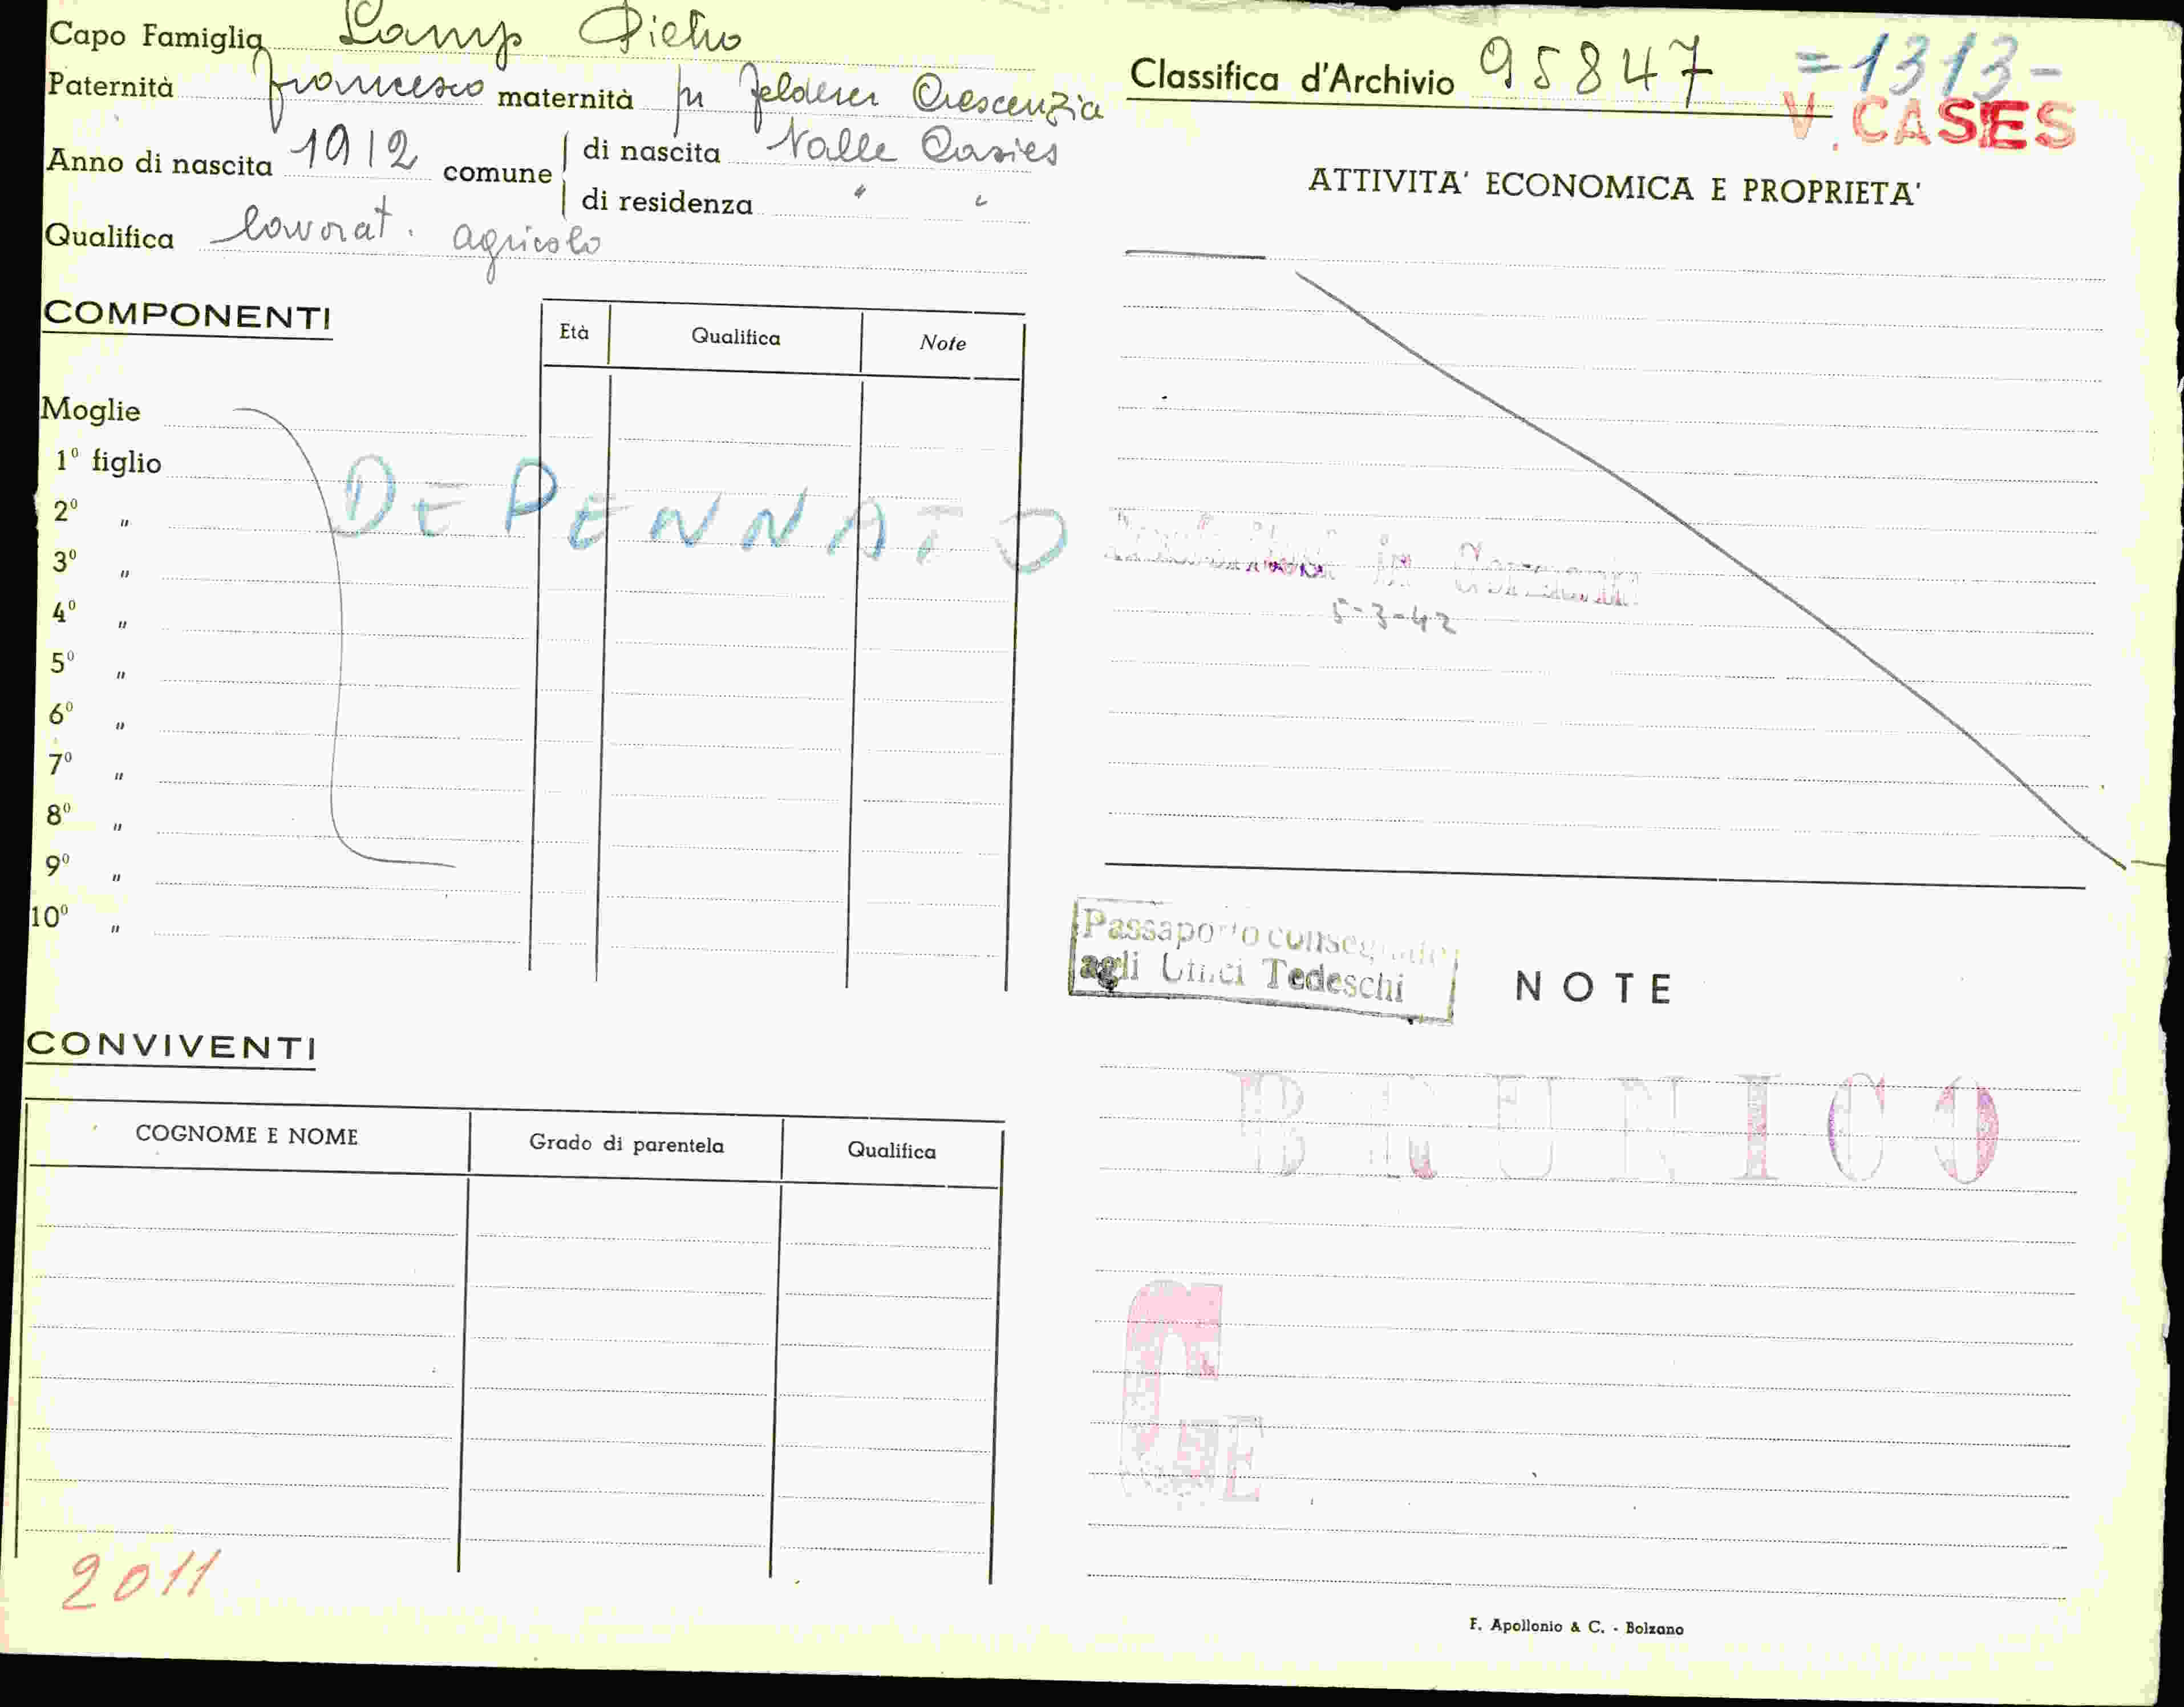 Capo Famiglia Lamp Pietro
Paternità Francesco maternità fu Felderer Crescenzia
Anno di nascita 1912 comune di nascita Valle Casies
di residenza " "
Qualifica lavorat. agricolo
COMPONENTI
Età Qualifica Note
Moglie
1º figlio
2º "
3º "
4º "
5º "
6º "
7º "
8º "
9º "
10º "
DEPENNATO
CONVIVENTI
COGNOME E NOME Grado di parentela Qualifica
2011
Classifica d'Archivio 95847 =1313-
V. CASES
ATTIVITA' ECONOMICA E PROPRIETA'
in
5-3-42
Passaporto consegnato
agli Uffici Tedeschi
NOTE
BRUNICO
E
F. Apollonio & C. - Bolzano